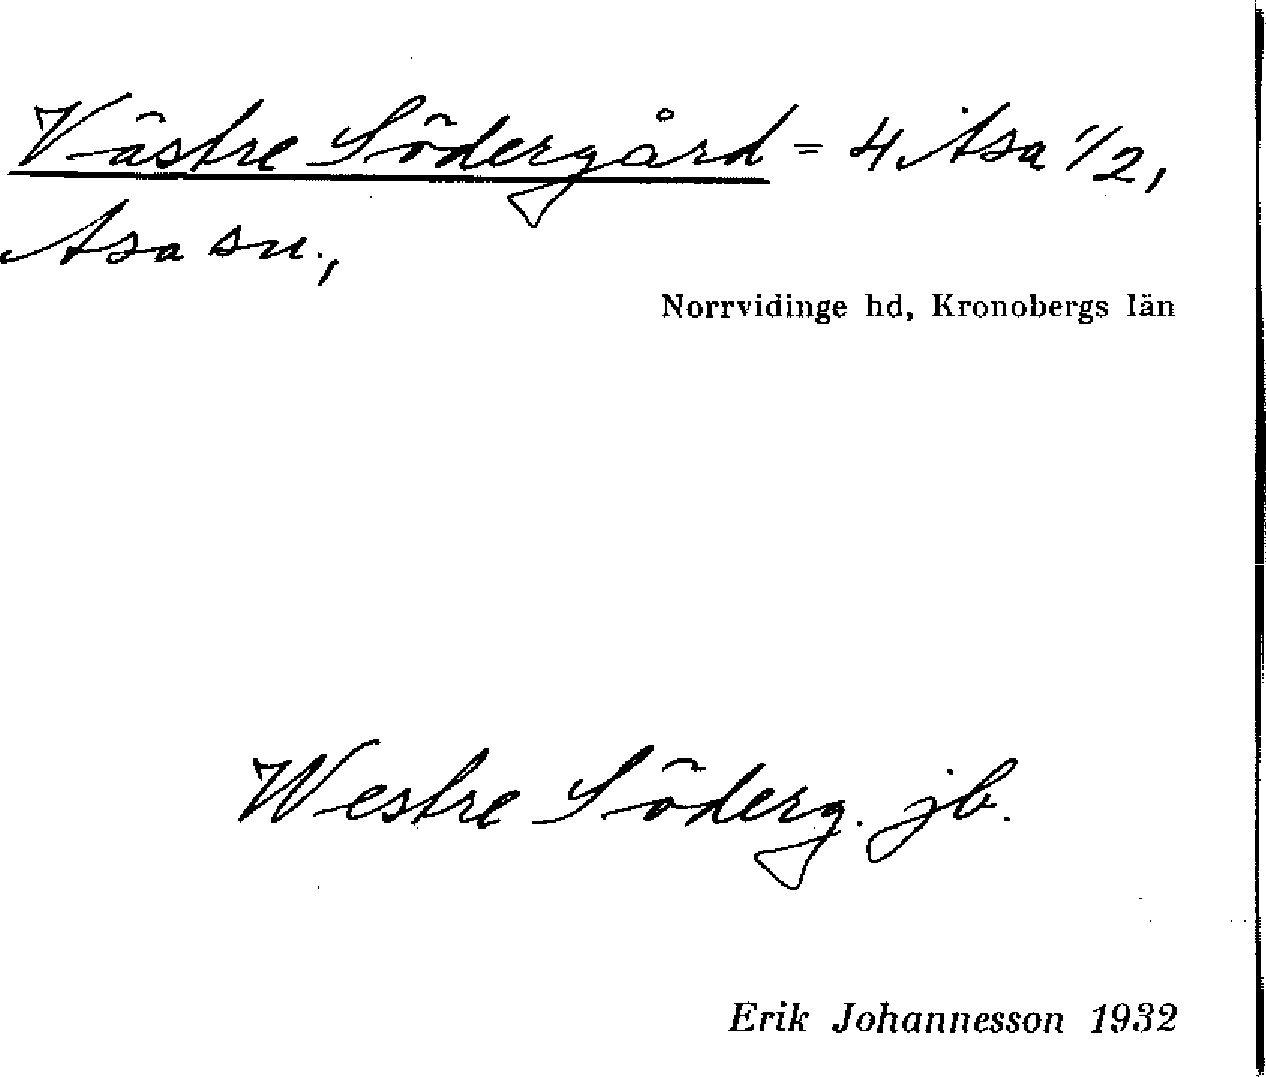 Västre Södergård = 4 Asa 1/2,
Asa sn.,
Norrvidinge hd, Kronobergs län
Westre Söderg. jb.
Erik Johannesson 1932